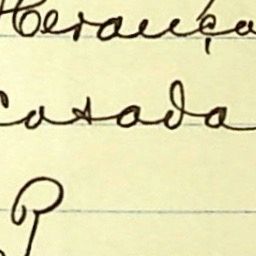 Herança
casada
P